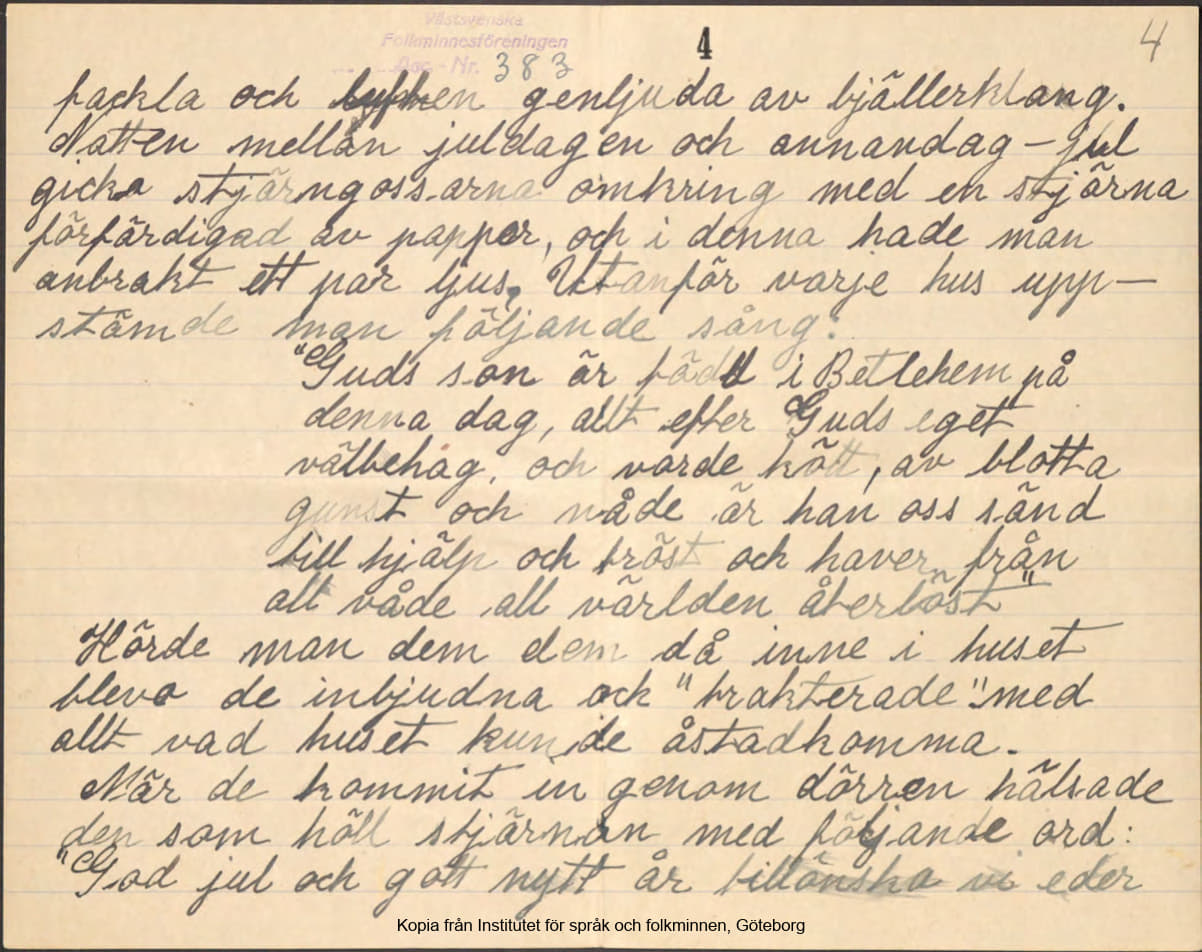 Västsvenska
Folkminnesföreningen
Acc-Nr. 383
4
4
fackla och luften genljuda av bjällerklang.
Natten mellan juldagen och annandag-jul
gicko stjärngossarna omkring med en stjärna
förfärdigad av papper, och i denna hade man
anbrakt ett par ljus. Utanför varje hus upp-
stämde man följande sång:
"Guds son är född i Betlehem på
denna dag, allt efter Guds eget
välbehag, och varde kött, av blotta
gunst och nåde är han oss sänd
till hjälp och tröst och haver från
all våde all världen återlöst"
Hörde man dem dem då inne i huset
blevo de inbjudna och "trakterade" med
allt vad huset kunde åstadkomma.
När de kommit in genom dörren hälsade
den som höll stjärnan med följande ord:
"God jul och gott nytt år tillönska vi eder
Kopia från Institutet för språk och folkminnen, Göteborg